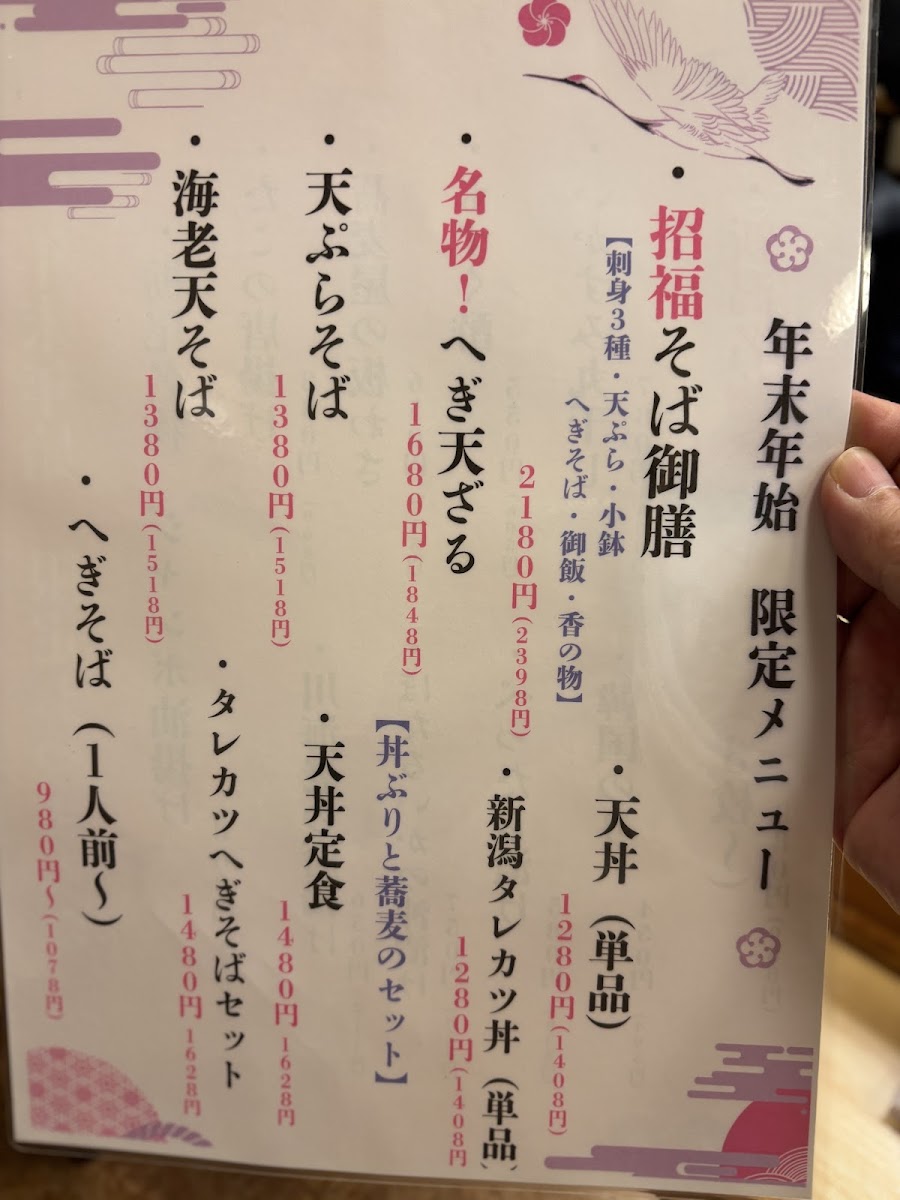 年末年始 限定メニュー
・招福そば御膳
【刺身3種・天ぷら・小鉢
へぎそば・御飯・香の物】
2180円(2398円)
・名物!へぎ天ざる
1680円(1848円)
・天ぷらそば
1380円(1518円)
・海老天そば
1380円(1518円)
・天丼(単品)
1280円(1408円)
・新潟タレカツ丼(単品)
1280円(1408円)
【丼ぶりと蕎麦のセット】
・天丼定食
1480円 1628円
・タレカツへぎそばセット
1480円 1628円
・へぎそば(1人前〜)
980円〜(1078円)